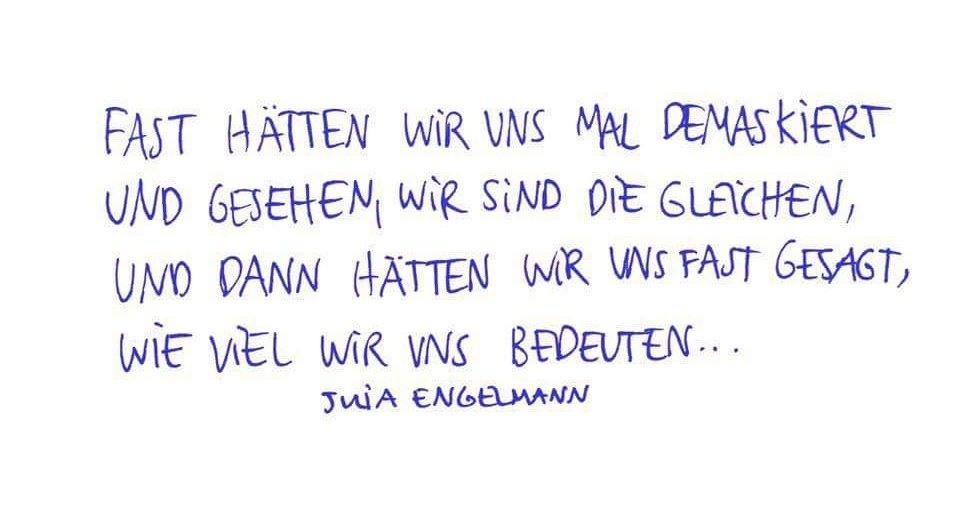 FAST HÄTTEN WIR UNS MAL DEMASKIERT
UND GESEHEN, WIR SIND DIE GLEICHEN,
UND DANN HÄTTEN WIR UNS FAST GESAGT,
WIE VIEL WIR UNS BEDEUTEN...
JULIA ENGELMANN